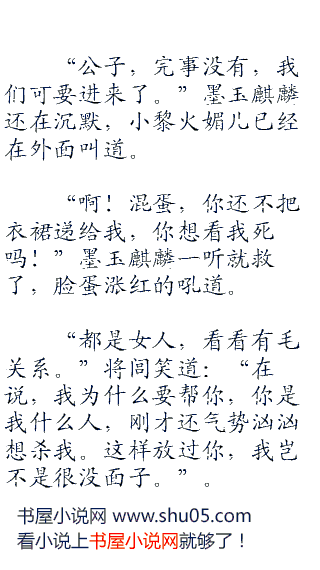 “公子，完事没有，我
们可要进来了。”墨玉麒麟
还在沉默，小黎火媚儿已经
在外面叫道。
“啊！混蛋，你还不把
衣裙递给我，你想看我死
吗！”墨玉麒麟一听就救
了，脸蛋涨红的吼道。
“都是女人，看看有毛
关系。”将闾笑道：“在
说，我为什么要帮你，你是
我什么人，刚才还气势汹汹
想杀我。这样放过你，我岂
不是很没面子。”。
书屋小说网 www.shu05.com
看小说上书屋小说网就够了！